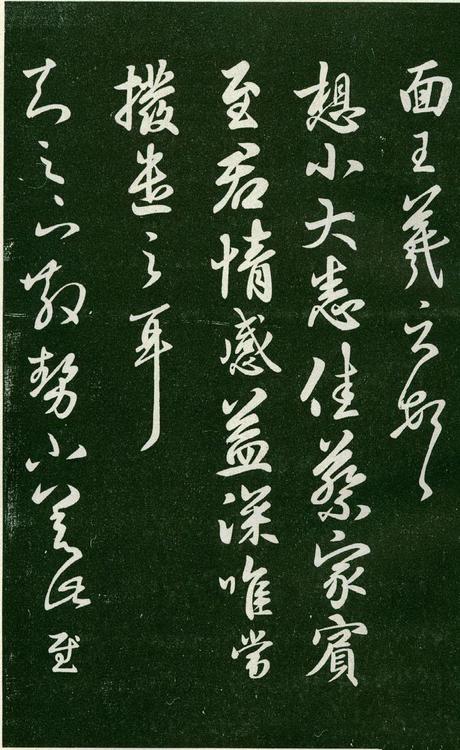 面王羲之
想小大悉佳蔡家賓
至君情感益深唯當
撥遣之耳
知足下散勢小差此慰